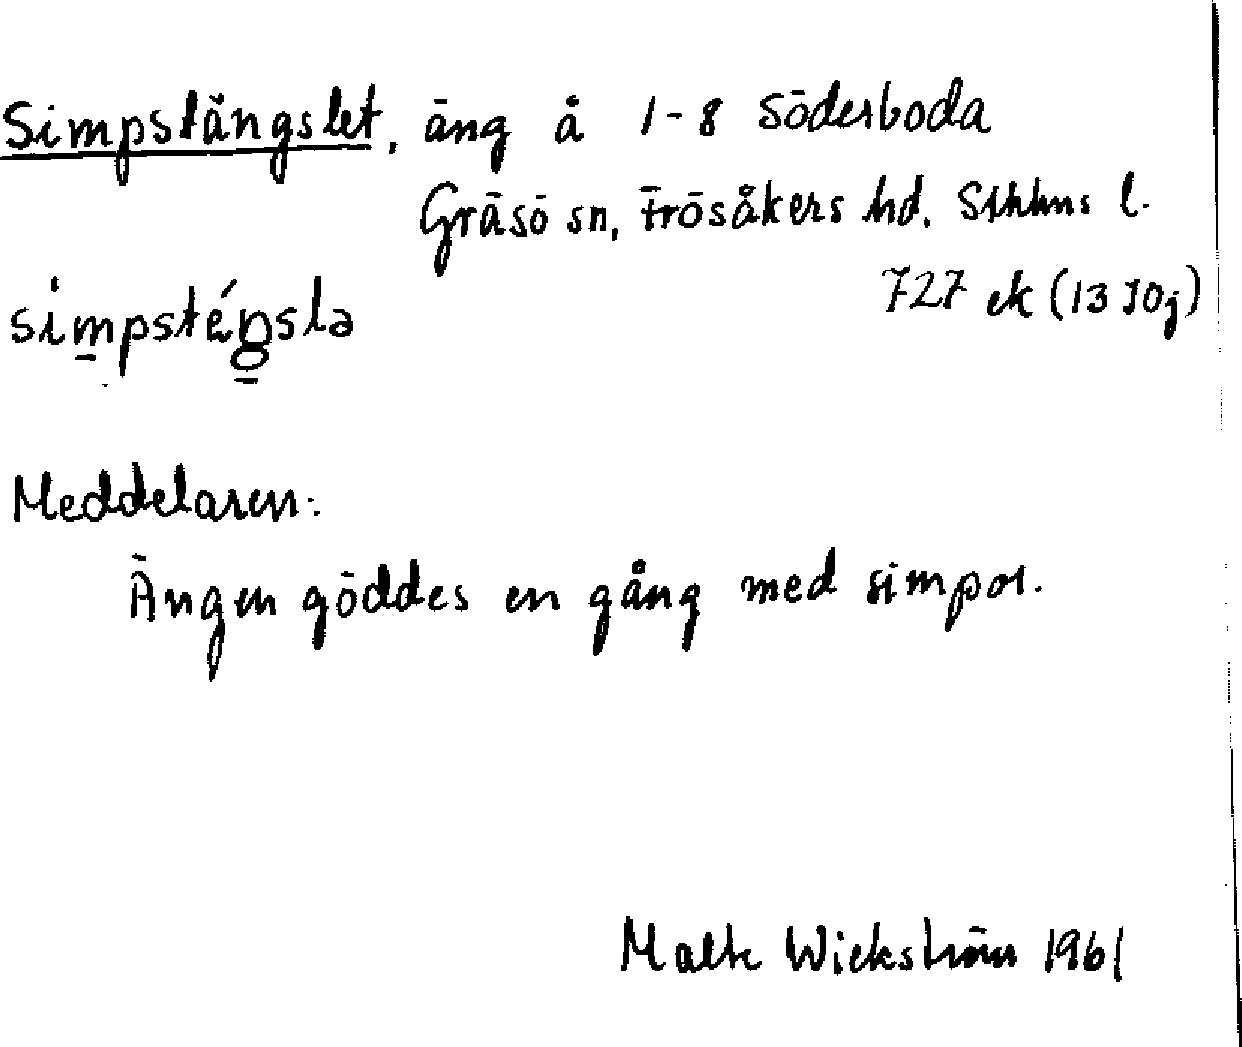 Simpstängslet, äng å 1-8 Söderboda
Gräsö sn, Frösåkers hd. Sthlms l.
727 ek (13 I0j)
simpsténsla
Meddelaren:
Ängen göddes en gång med simpor.
Malte Wickström 1961